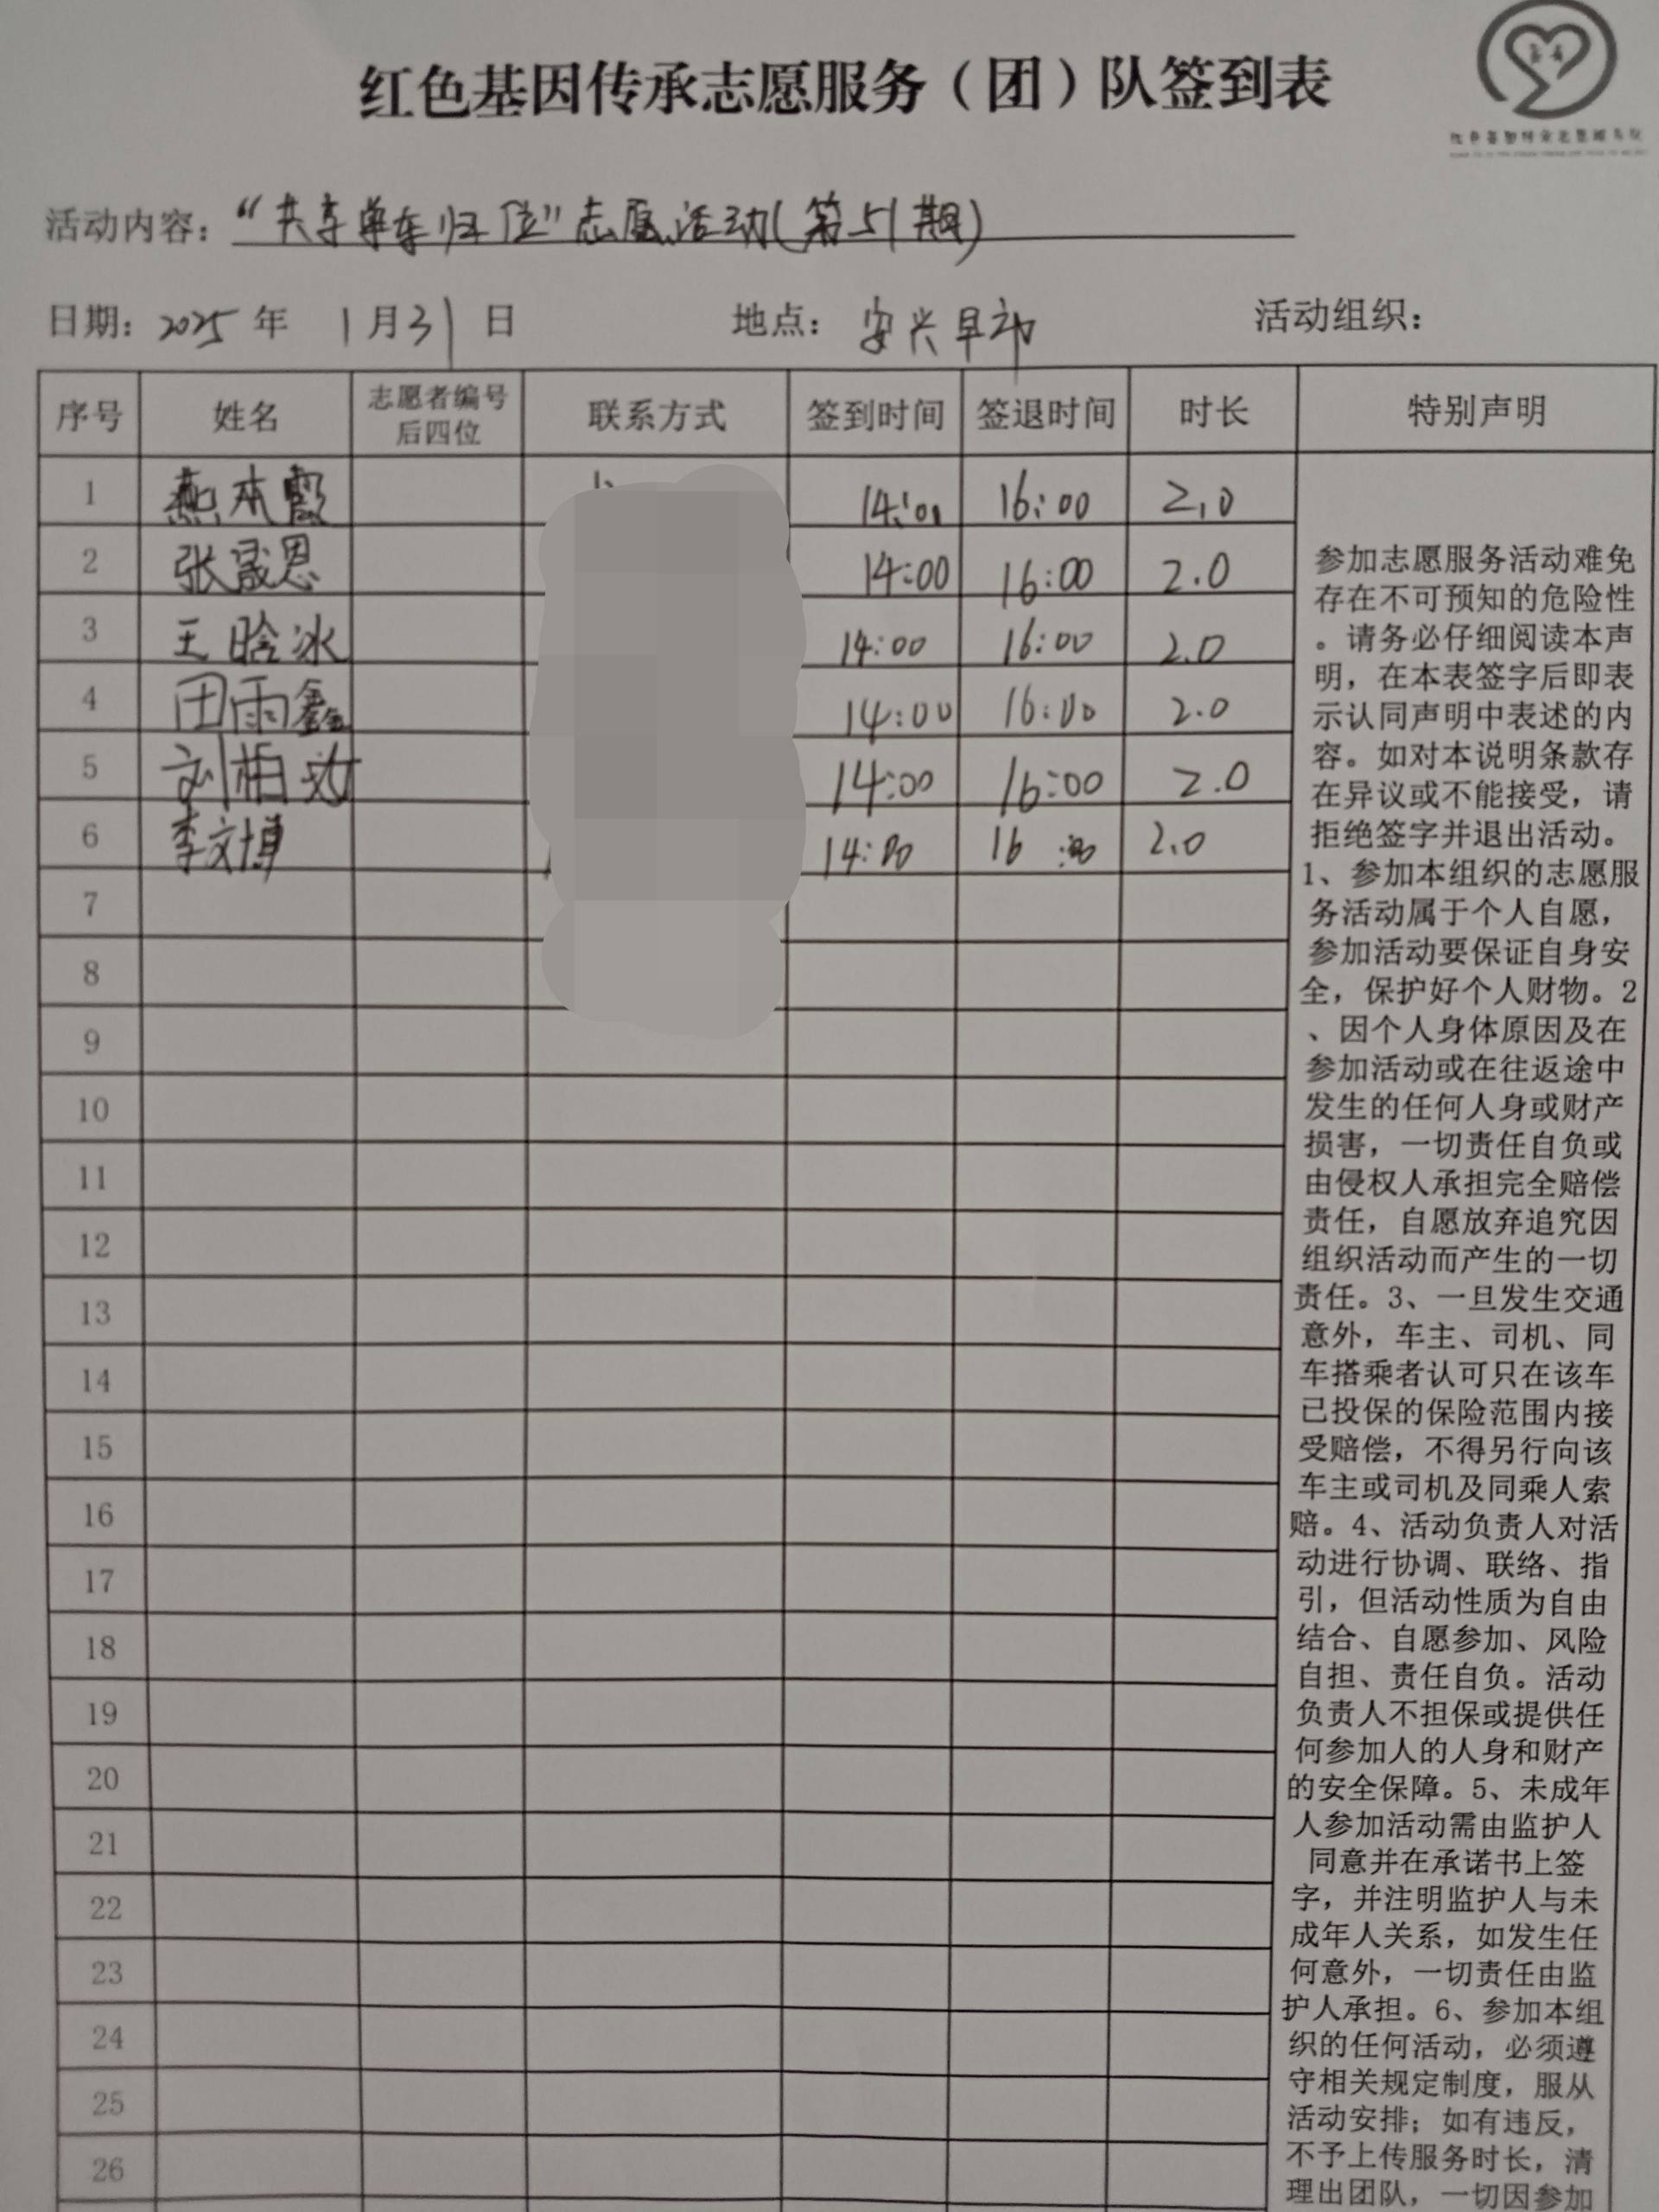 红色基因传承志愿服务（团）队签到表
活动内容：“共享单车归位”志愿活动(第51期)
日期：2025年 1月31日 地点：安兴早市 活动组织：
序号 姓名 志愿者编号后四位 联系方式 签到时间 签退时间 时长 特别声明
1 燕本霞 14:00 16:00 2.0
2 张晟恩 14:00 16:00 2.0
3 王晗冰 14:00 16:00 2.0
4 田雨鑫 14:00 16:00 2.0
5 刘柏 14:00 16:00 2.0
6 李文博 14:00 16:00 2.0
7
8
9
10
11
12
13
14
15
16
17
18
19
20
21
22
23
24
25
26
参加志愿服务活动难免
存在不可预知的危险性
。请务必仔细阅读本声
明，在本表签字后即表
示认同声明中表述的内
容。如对本说明条款存
在异议或不能接受，请
拒绝签字并退出活动。
1、参加本组织的志愿服
务活动属于个人自愿，
参加活动要保证自身安
全，保护好个人财物。2
、因个人身体原因及在
参加活动或在往返途中
发生的任何人身或财产
损害，一切责任自负或
由侵权人承担完全赔偿
责任，自愿放弃追究因
组织活动而产生的一切
责任。3、一旦发生交通
意外，车主、司机、同
车搭乘者认可只在该车
已投保的保险范围内接
受赔偿，不得另行向该
车主或司机及同乘人索
赔。4、活动负责人对活
动进行协调、联络、指
引，但活动性质为自由
结合、自愿参加、风险
自担、责任自负。活动
负责人不担保或提供任
何参加人的人身和财产
的安全保障。5、未成年
人参加活动需由监护人
同意并在承诺书上签
字，并注明监护人与未
成年人关系，如发生任
何意外，一切责任由监
护人承担。6、参加本组
织的任何活动，必须遵
守相关规定制度，服从
活动安排；如有违反，
不予上传服务时长，清
理出团队，一切因参加